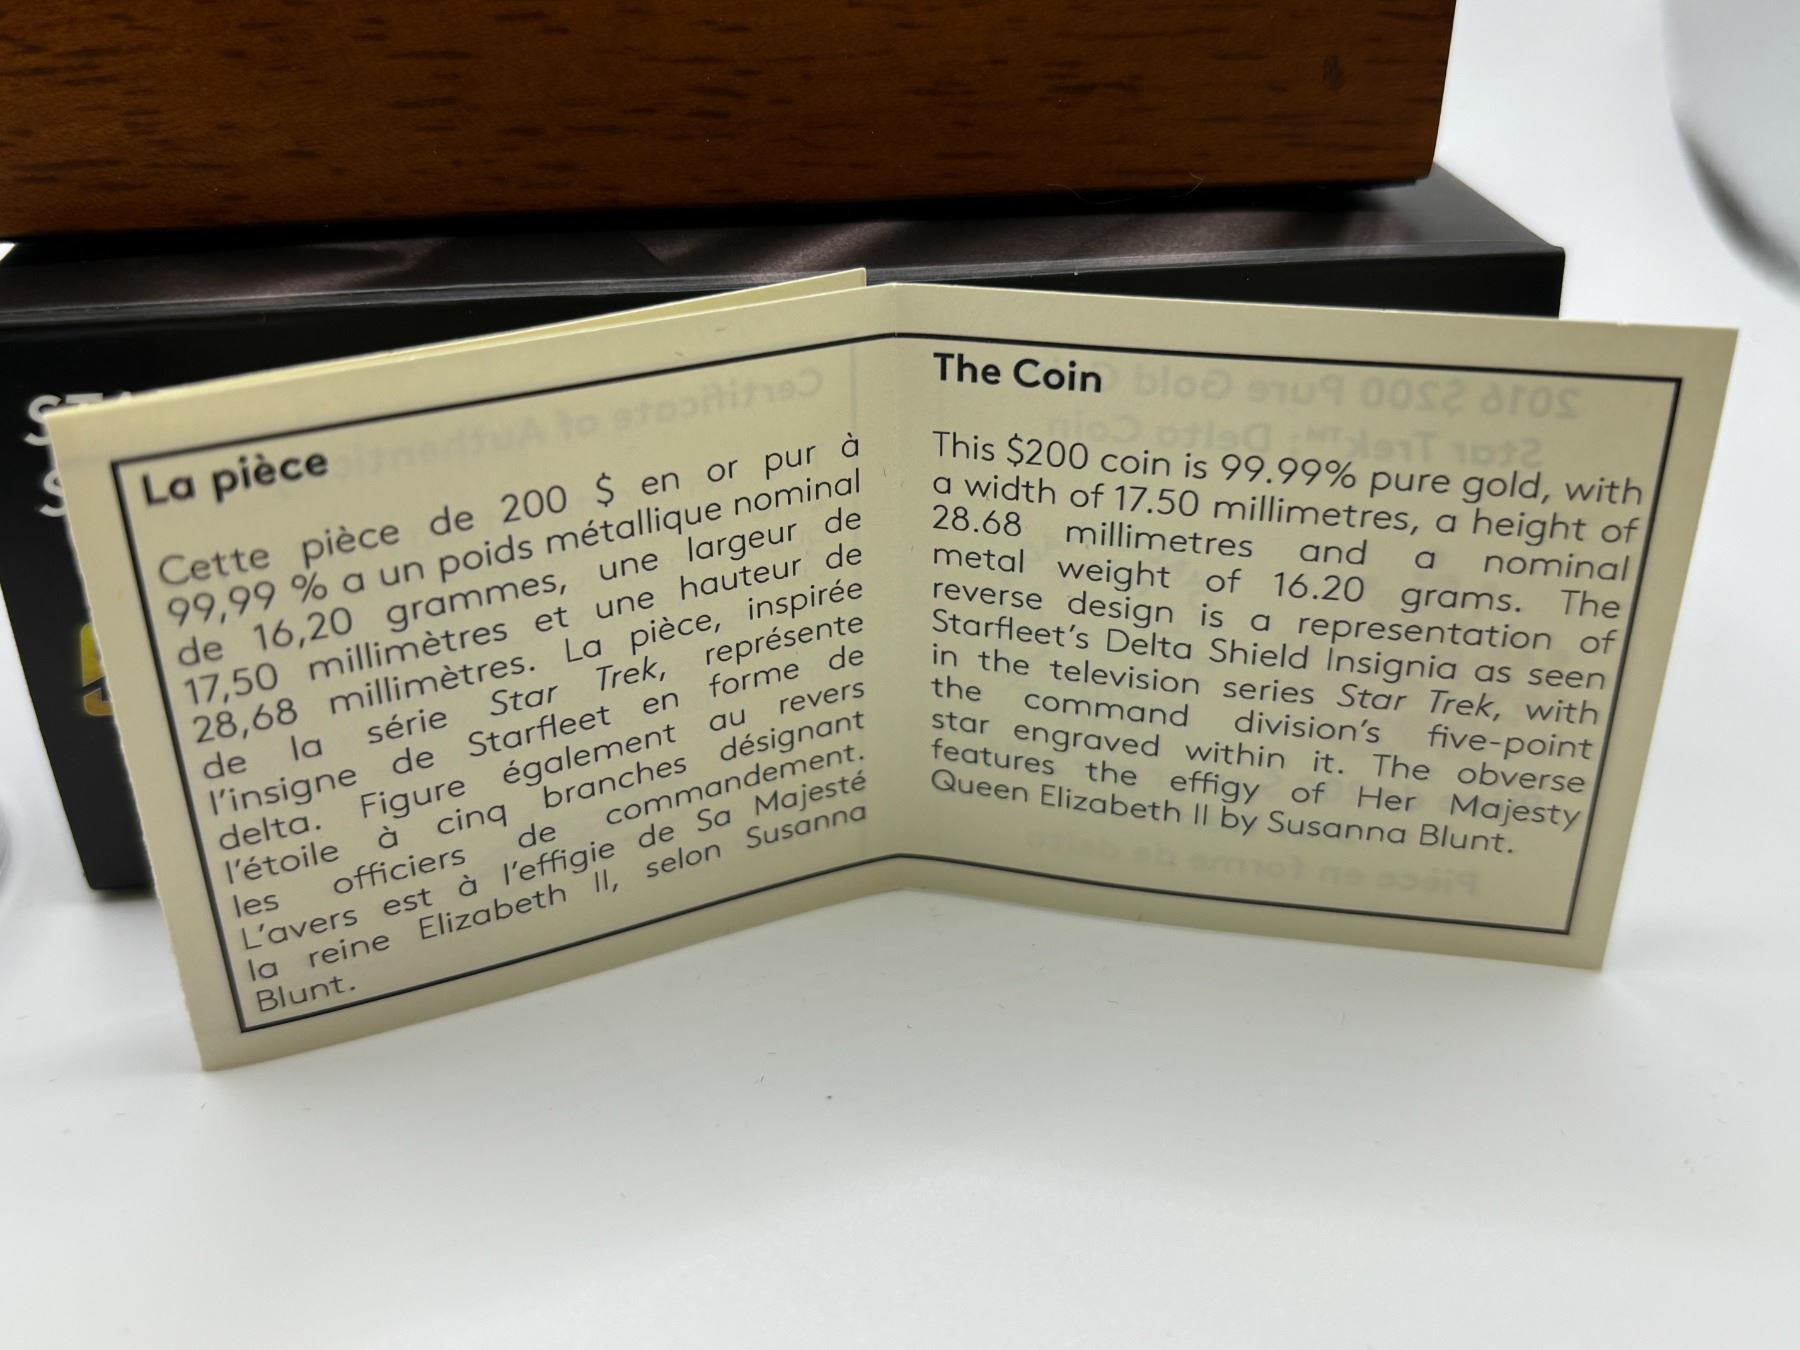 La pièce
Cette pièce de 200 $ en or pur à
99,99 % a un poids métallique nominal
de 16,20 grammes, une largeur de
17,50 millimètres et une hauteur de
28,68 millimètres. La pièce, inspirée
de la série Star Trek, représente
l'insigne de Starfleet en forme de
delta. Figure également au revers
l'étoile à cinq branches désignant
les officiers de commandement.
L'avers est à l'effigie de Sa Majesté
la reine Elizabeth II, selon Susanna
Blunt.
The Coin
This $200 coin is 99.99% pure gold, with
a width of 17.50 millimetres, a height of
28.68 millimetres and a nominal
metal weight of 16.20 grams. The
reverse design is a representation of
Starfleet's Delta Shield Insignia as seen
in the television series Star Trek, with
the command division's five-point
star engraved within it. The obverse
features the effigy of Her Majesty
Queen Elizabeth II by Susanna Blunt.
2016 $200 Pure Gold Coin
Star Trek™: Delta Coin
Certificate of Authentic
Pièce en forme de delta